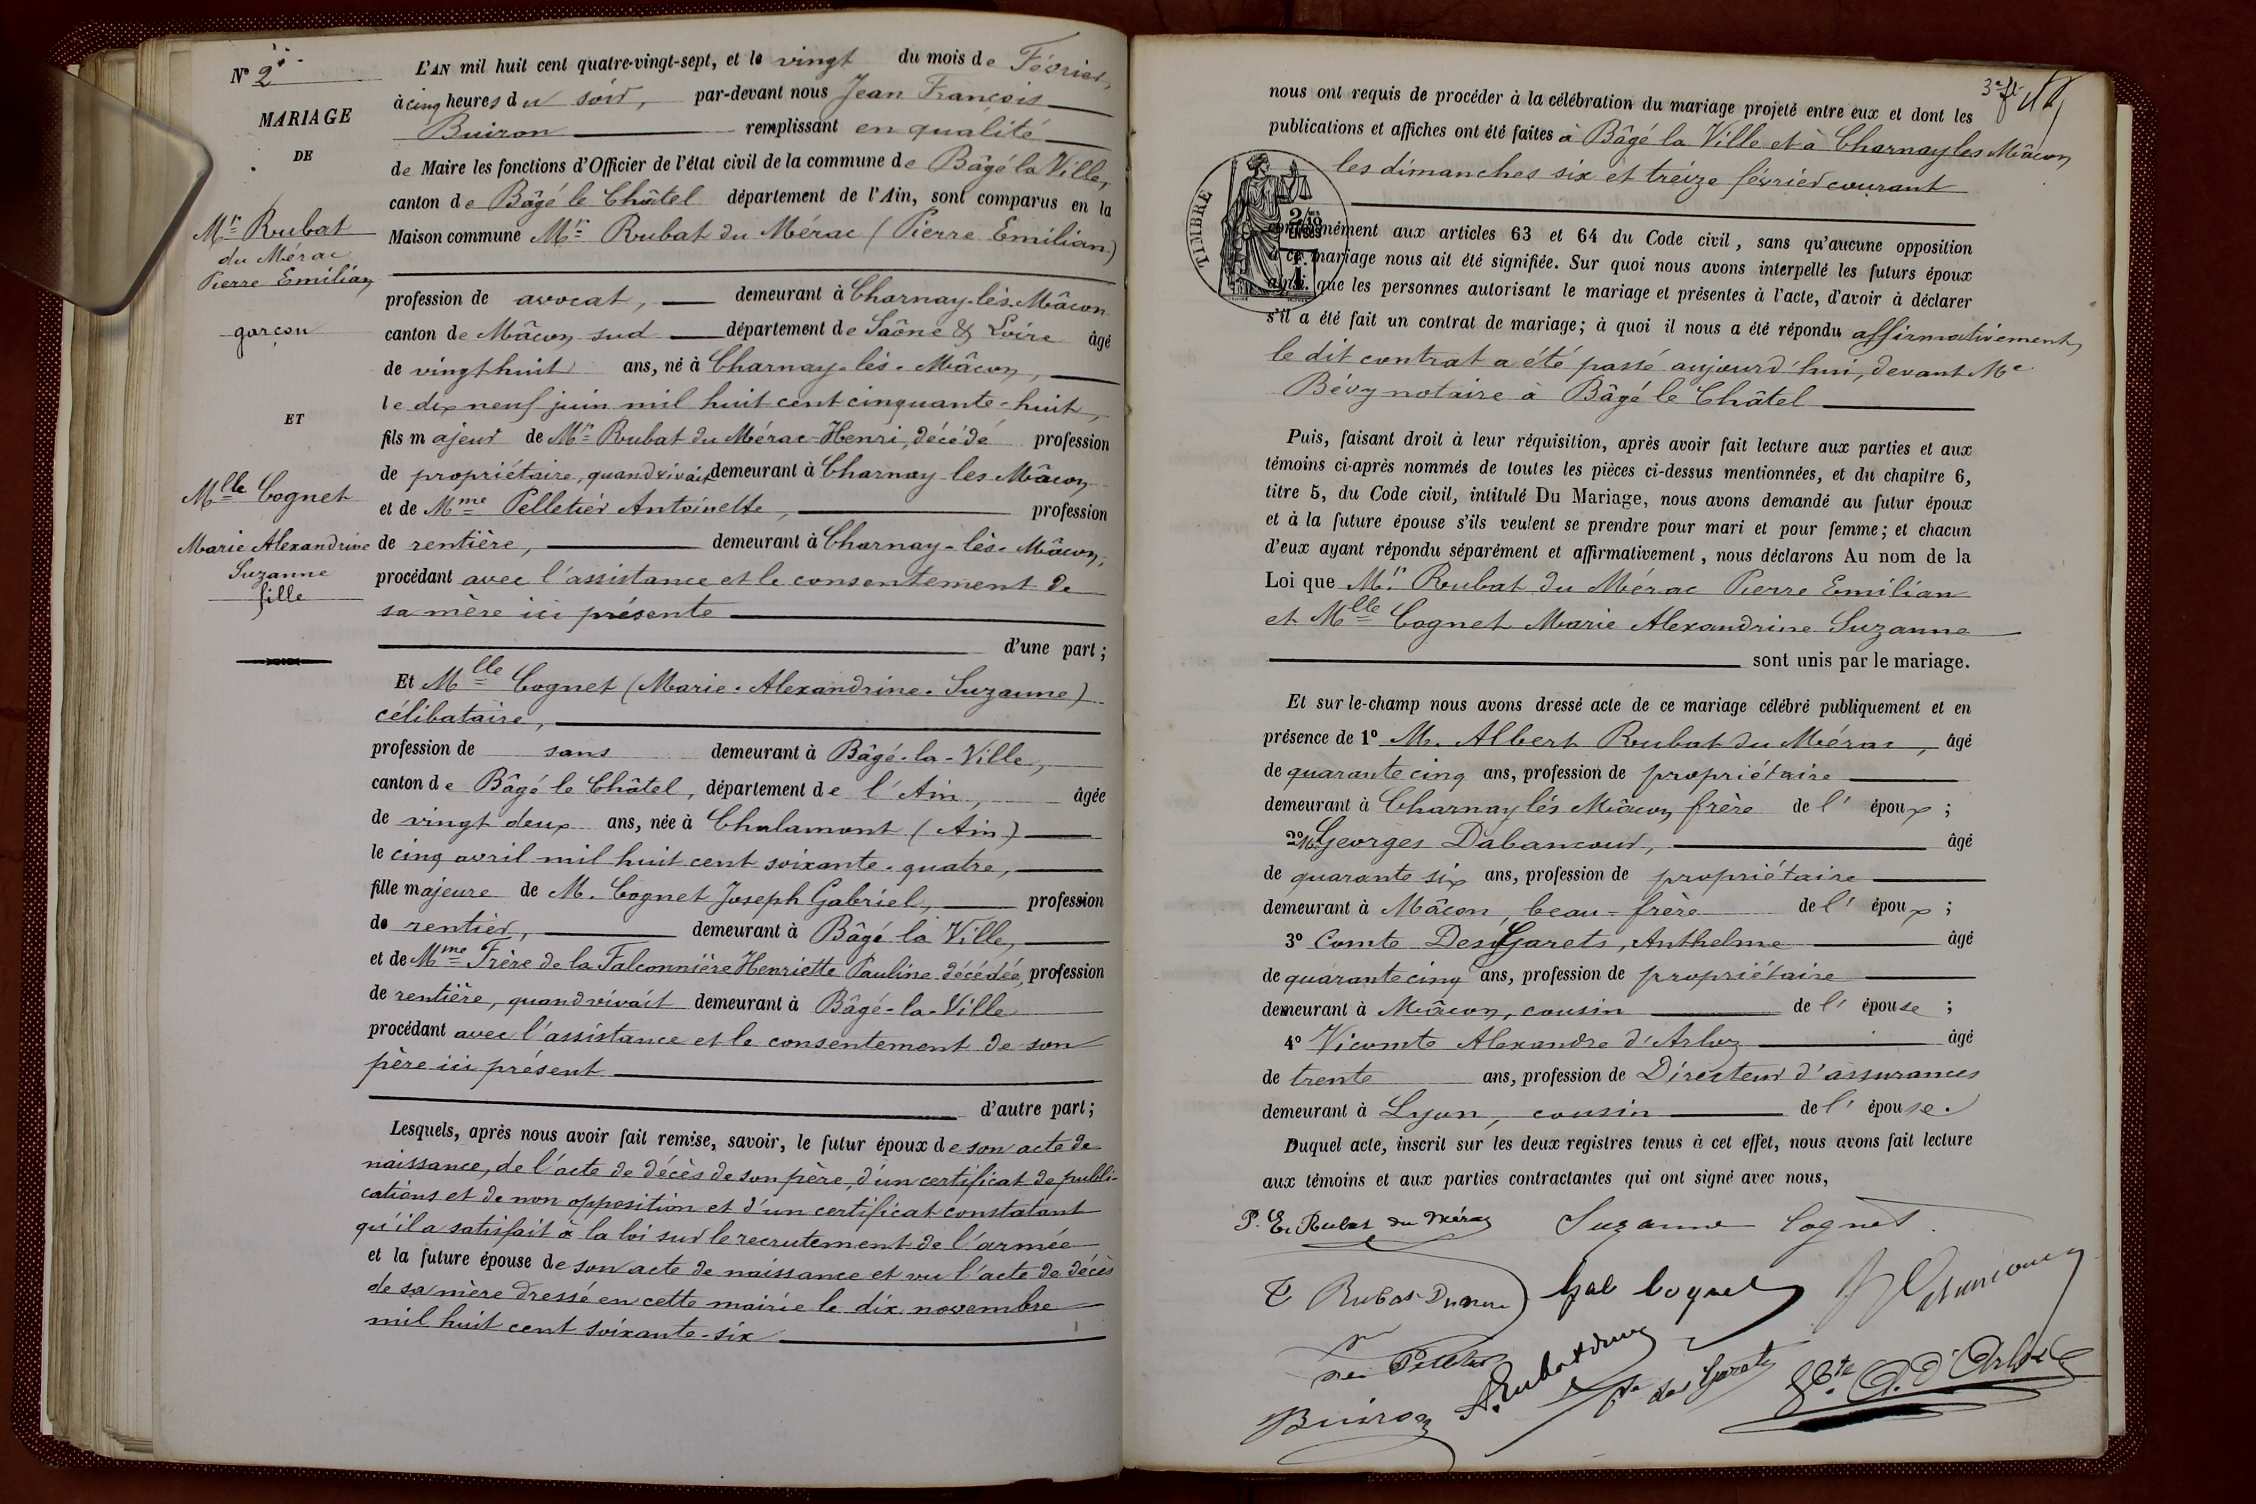 N° 2
MARIAGE
DE
Mr Rubat
du Mérac
Pierre Emilian
garçon
ET
Mlle Cognet
Marie Alexandrine
Suzanne
fille
L'AN mil huit cent quatre-vingt-sept, et le vingt du mois de Février,
à cinq heures du soir, par-devant nous Jean François
Buiron remplissant en qualité
de Maire les fonctions d'Officier de l'état civil de la commune de Bâgé la Ville,
canton de Bâgé le Châtel département de l'Ain, sont comparus en la
Maison commune Mr Rubat du Mérac (Pierre Emilian)
profession de avocat, demeurant à Charnay-lès-Mâcon
canton de Mâcon sud département de Saône & Loire âgé
de vingt huit ans, né à Charnay-lès-Mâcon,
le dix neuf juin mil huit cent cinquante-huit,
fils majeur de Mr Rubat du Mérac Henri, décédé profession
de propriétaire, quand vivait demeurant à Charnay les Mâcon
et de Mme Pelletier Antoinette, profession
de rentière, demeurant à Charnay-lès-Mâcon,
procédant avec l'assistance et le consentement de
sa mère ici présente
d'une part ;
Et Mlle Cognet (Marie-Alexandrine-Suzanne)
célibataire,
profession de sans demeurant à Bâgé-la-Ville,
canton de Bâgé le Châtel, département de l'Ain, âgée
de vingt deux ans, née à Chalamont (Ain)
le cinq avril mil huit cent soixante-quatre,
fille majeure de M. Cognet Joseph Gabriel, profession
de rentier, demeurant à Bâgé la Ville,
et de Mme Frère de la Falconnière Henriette Pauline décédée, profession
de rentière, quand vivait demeurant à Bâgé-la-Ville
procédant avec l'assistance et le consentement de son
père ici présent
d'autre part ;
Lesquels, après nous avoir fait remise, savoir, le futur époux de son acte de
naissance, de l'acte de décès de son père, d'un certificat de publi-
cations et de non opposition et d'un certificat constatant
qu'il a satisfait à la loi sur le recrutement de l'armée
et la future épouse de son acte de naissance et vu l'acte de décès
de sa mère dressé en cette mairie le dix novembre
mil huit cent soixante-six
nous ont requis de procéder à la célébration du mariage projeté entre eux et dont les
publications et affiches ont été faites à Bâgé la Ville et à Charnay les Mâcon
les dimanches six et treize février courant
TIMBRE
conformément aux articles 63 et 64 du Code civil, sans qu'aucune opposition
à ce mariage nous ait été signifiée. Sur quoi nous avons interpellé les futurs époux
ainsi que les personnes autorisant le mariage et présentes à l'acte, d'avoir à déclarer
s'il a été fait un contrat de mariage ; à quoi il nous a été répondu affirmativement,
le dit contrat a été passé aujourd'hui, devant Me
Bévy notaire à Bâgé le Châtel
Puis, faisant droit à leur réquisition, après avoir fait lecture aux parties et aux
témoins ci-après nommés de toutes les pièces ci-dessus mentionnées, et du chapitre 6,
titre 5, du Code civil, intitulé Du Mariage, nous avons demandé au futur époux
et à la future épouse s'ils veulent se prendre pour mari et pour femme ; et chacun
d'eux ayant répondu séparément et affirmativement, nous déclarons Au nom de la
Loi que Mr Rubat du Mérac Pierre Emilian
et Mlle Cognet Marie Alexandrine Suzanne
sont unis par le mariage.
Et sur-le-champ nous avons dressé acte de ce mariage célébré publiquement et en
présence de 1° M. Albert Rubat du Mérac, âgé
de quarante cinq ans, profession de propriétaire
demeurant à Charnay lès Mâcon frère de l'époux ;
2° M. Georges Dabancour, âgé
de quarante six ans, profession de propriétaire
demeurant à Mâcon, beau-frère de l'époux ;
3° Comte Des Garets, Anthelme âgé
de quarante cinq ans, profession de propriétaire
demeurant à Mâcon, cousin de l'épouse ;
4° Vicomte Alexandre d'Arloz âgé
de trente ans, profession de Directeur d'assurances
demeurant à Lyon, cousin de l'épouse.
Duquel acte, inscrit sur les deux registres tenus à cet effet, nous avons fait lecture
aux témoins et aux parties contractantes qui ont signé avec nous,
P. E. Rubat du Mérac Suzanne Cognet
Rubat Du Mérac Gab Cognet
née Pelletier A. Rubat du Mérac
Cte des Garets Vte A. d'Arloz
Buiron